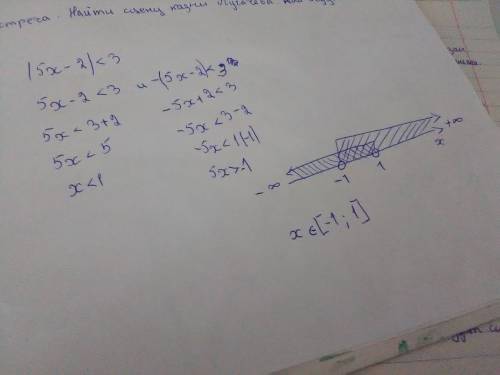 стреча. Найти сцену
|5x-2|<3
5x-2<3 и -(5x-2)<3
5x<3+2 -5x+2<3
5x<5 -5x<3-2
x<1 -5x<1|(-1)
5x>-1
-∞ -1 1 x +∞
x∈[-1; 1]